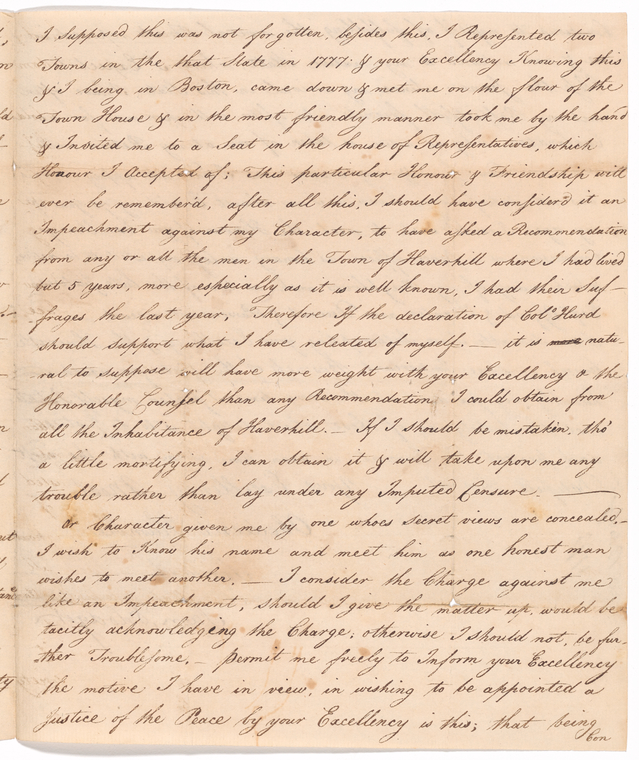 I supposed this was not forgotten, besides this, I Represented two
Towns in the that State in 1777 & your Excellency Knowing this
& I being in Boston, came down & met me on the flour of the
Town House & in the most friendly manner took me by the hand
& Invited me to a Seat in the house of Representatives, which
Honour I Accepted of; This particular Honour & Friendship will
ever be rememberd, after all this, I should have considerd it an
Impeachment against my Character, to have asked a Recommendation
from any or all the men in the Town of Haverhill where I had lived
but 5 years, more especially as it is well known, I had their Suf-
frages the last year, Therefore If the declaration of Colo Hurd
should support what I have releated of myself. — it is more natu-
ral to suppose will have more weight with your Excellency & the
Honorable Counsel than any Recommendation I could obtain from
all the Inhabitance of Haverhill. — If I should be mistaken, tho'
a little mortifying, I can obtain it & will take upon me any
trouble rather than lay under any Imputed Censure. —
Or Character given me by one whoes secret views are concealed, —
I wish to Know his name and meet him as one honest man
wishes to meet another. — I consider the Charge against me
like an Impeachment, should I give the matter up, would be
tacitly acknowledgeing the Charge; otherwise I should not, be fur-
ther Troublesome. — Permit me freely to Inform your Excellency
the motive I have in view, in wishing to be appointed a
Justice of the Peace by your Excellency is this; that being
Con